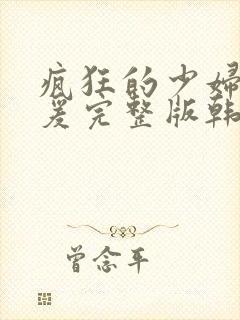 疯狂的少婦
爰完整版韩
曾念平